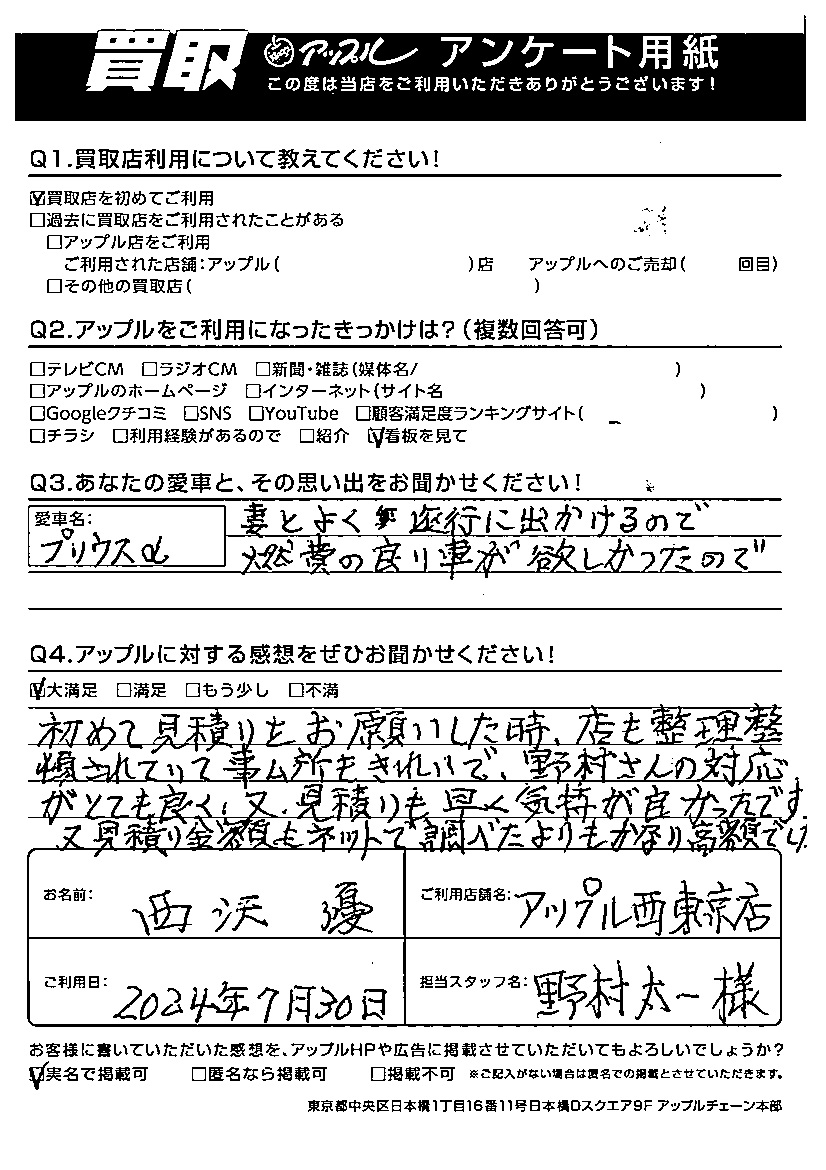 買取 アップル アンケート用紙
この度は当店をご利用いただきありがとうございます!
Q1.買取店利用について教えてください!
☑買取店を初めてご利用
□過去に買取店をご利用されたことがある
□アップル店をご利用
ご利用された店舗:アップル( )店 アップルへのご売却( 回目)
□その他の買取店( )
Q2.アップルをご利用になったきっかけは?(複数回答可)
□テレビCM □ラジオCM □新聞・雑誌(媒体名/ )
□アップルのホームページ □インターネット(サイト名 )
□Googleクチコミ □SNS □YouTube □顧客満足度ランキングサイト( )
□チラシ □利用経験があるので □紹介 ☑看板を見て
Q3.あなたの愛車と、その思い出をお聞かせください!
愛車名:
プリウスα
妻とよく遊行に出かけるので
燃費の良り車が欲しかったので
Q4.アップルに対する感想をぜひお聞かせください!
☑大満足 □満足 □もう少し □不満
初めて見積りをお願いした時、店も整理整
頓されていて事ム所もきれいで、野村さんの対応
がとても良く、又、見積りも早く気持が良かったです
又見積り金額もネットで調べたよりもかなり高額でした
お名前: 西沢 優
ご利用店舗名: アップル西東京店
ご利用日: 2024年7月30日
担当スタッフ名: 野村太一様
お客様に書いていただいた感想を、アップルHPや広告に掲載させていただいてもよろしいでしょうか?
☑実名で掲載可 □匿名なら掲載可 □掲載不可 ※ご記入がない場合は匿名での掲載とさせていただきます。
東京都中央区日本橋1丁目16番11号日本橋Dスクエア9F アップルチェーン本部